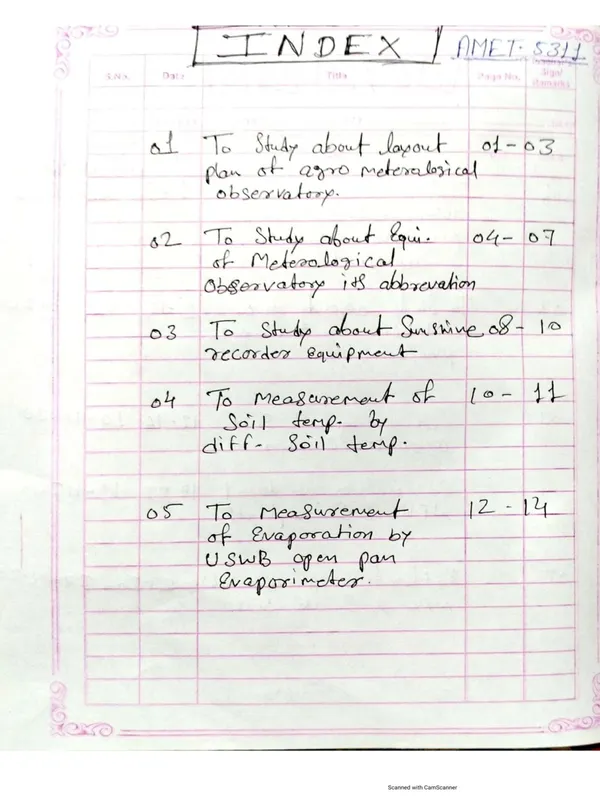 INDEX AMET. 5311
S.No. Date Title Page No. Sign/ Remarks
01 To Study about layout 01-03
plan of agro meteralogical
observatory.
02 To Study about Equi. 04- 07
of Meterological
Observatory its abbrevation
03 To Study about Sunshine 08- 10
recorder equipment
04 To Measurement of 10- 11
Soil temp. by
diff- Soil temp.
05 To Measurement 12-14
of Evaporation by
USWB open pan
Evaporimeter.
Scanned with CamScanner